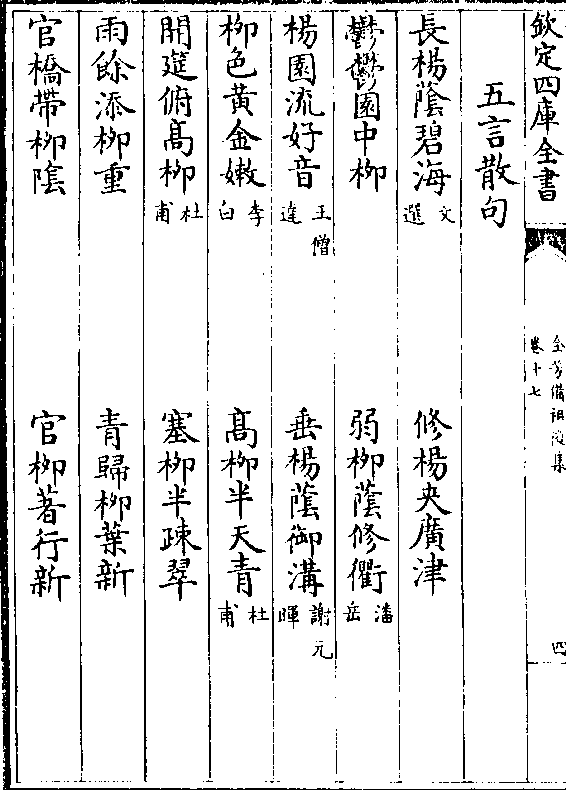 欽定四庫全書
全芳備祖後集
卷十七
四
五言散句
長楊蔭碧海文選 修楊夾廣津
鬱鬱園中栁 弱栁蔭修衢潘岳
楊園流好音王僧達 垂楊蔭御溝謝元暉
栁色黄金嫩李白 髙栁半天青杜甫
開筵俯髙栁杜甫 塞栁半疎翠
雨餘添栁重 青歸栁葉新
官橋帶栁隂 官栁著行新